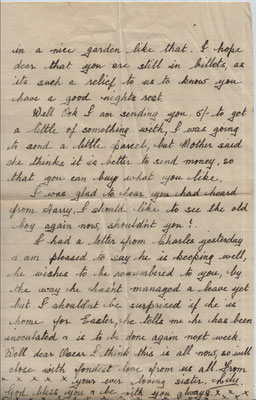 in a nice garden like that. I hope
dear that you are still in billets, as
its such a relief to us to know you
have a good nights rest.
Well Osk I am sending you 5/- to get
a little of something with, I was going
to send a little parcel, but Mother said
she thinks it is better to send money, so
that you can buy what you like.
I was glad to hear you had heard
from Harry, I should like to see the old
boy again now, shouldnt you!
I had a letter from Charles yesterday
& am pleased to say he is keeping well,
he wishes to be remembered to you, by
the way he hasnt managed a leave yet
but I shouldnt be surprised if he is
home for Easter, he tells me he has been
inoculated & is to be done again next week.
Well dear Oscar I think this is all now, so will
close with fondest love from us all From
x x x x x x your ever loving sister. Lily.
God bless you & be with you always. x x x x